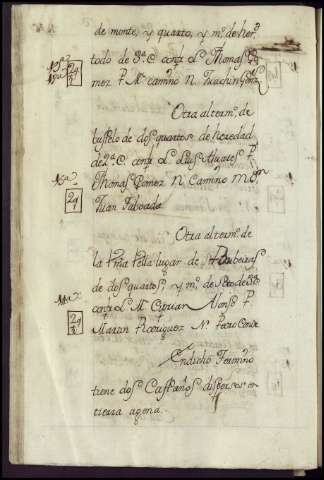 de monte, y quarto, y m.º de her.º
todo de 3.ª C. conf.ª L. Thomas Go
mez P. M. camino N. Juachin Gonz.
Otra al term.º de
de dos quartos de heredad
de 2.ª C. conf.ª L. Luis Aluares P.
Thomas Gomez N. Camino M. D.n
Juan Taboada
Otra al term.º de
la Peña lugar de
de dos quartos, y m.º de
conf.ª L. M. Ciprian Alonso P.
Martin Rodriguez N. Pedro Conde
En dicho Termino
tiene dos Castaños dispersos en
tierra agena.